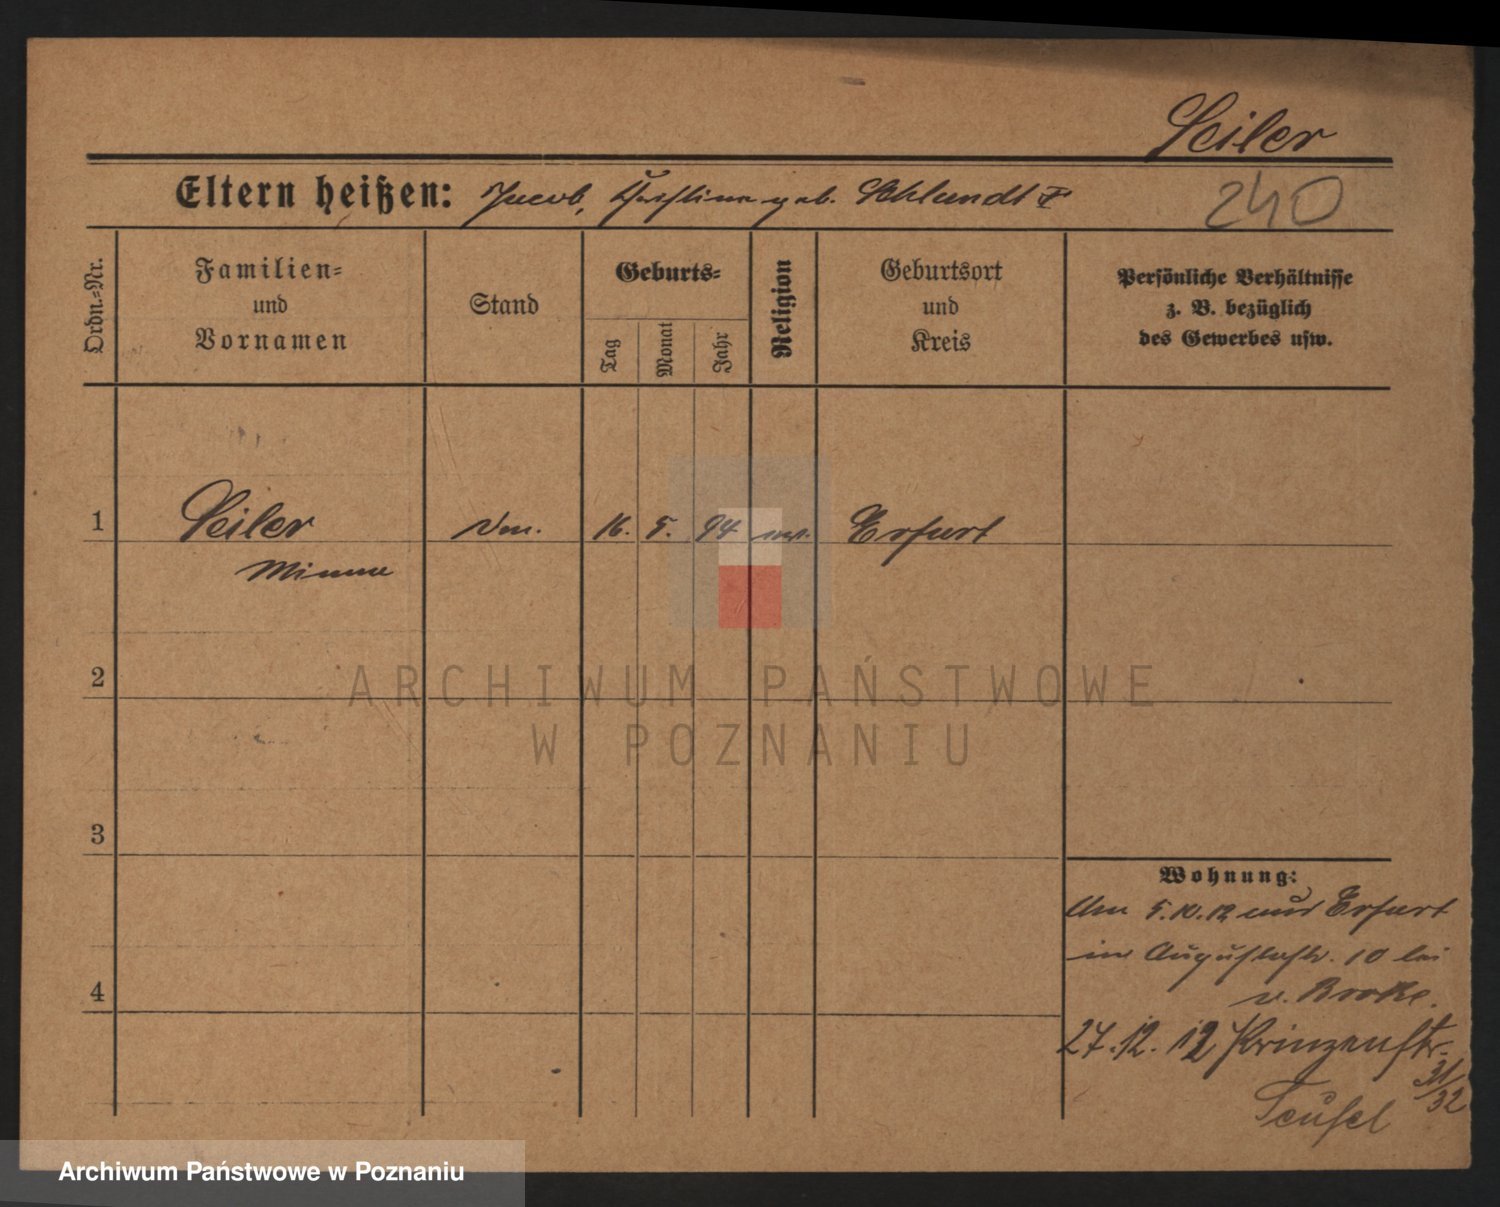 Seiler
Eltern heißen: Jacob, geb. Schlundt
240
Ordn.-Nr.
Familien-
und
Vornamen
Stand
Geburts-
Tag
Monat
Jahr
Religion
Geburtsort
und
Kreis
Persönliche Verhältnisse
z. B. bezüglich
des Gewerbes usw.
1 Seiler 16. 5. 94 ev. Erfurt
Minna
2
ARCHIWUM PAŃSTWOWE
W POZNANIU
3
Wohnung:
Am 5.10.12 aus Erfurt
in Augustastr. 10 bei
v. Brocke.
4
27.12.12 Prinzenstr.
31/32
Teufel
Archiwum Państwowe w Poznaniu